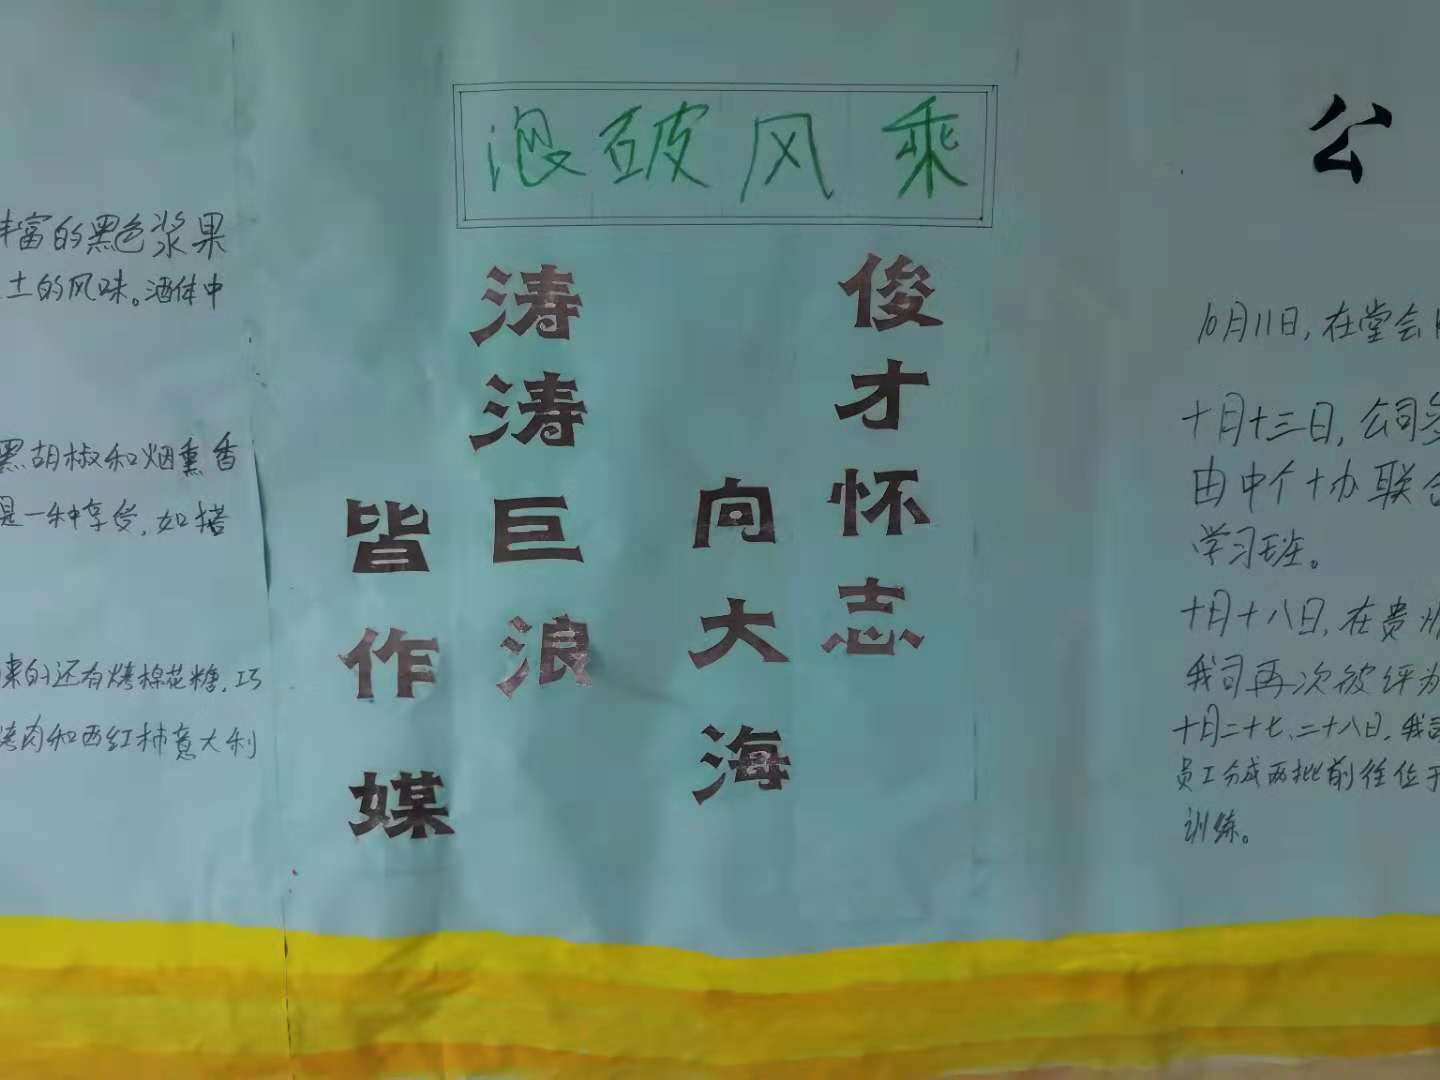 乘风破浪
俊才怀志
向大海
涛涛巨浪
皆作媒
丰富的黑色浆果
土的风味。酒体中
黑胡椒和烟熏香
是一种享受，如搭
来的还有烤棉花糖，巧
烤肉和西红柿意大利
公
10月11日，在堂会
十月十三日，公司
由中个协联合
学习班。
十月十八日，在贵州
我司再次被评为
十月二十七、二十八日，我司
员工分成两批前往位于
训练。